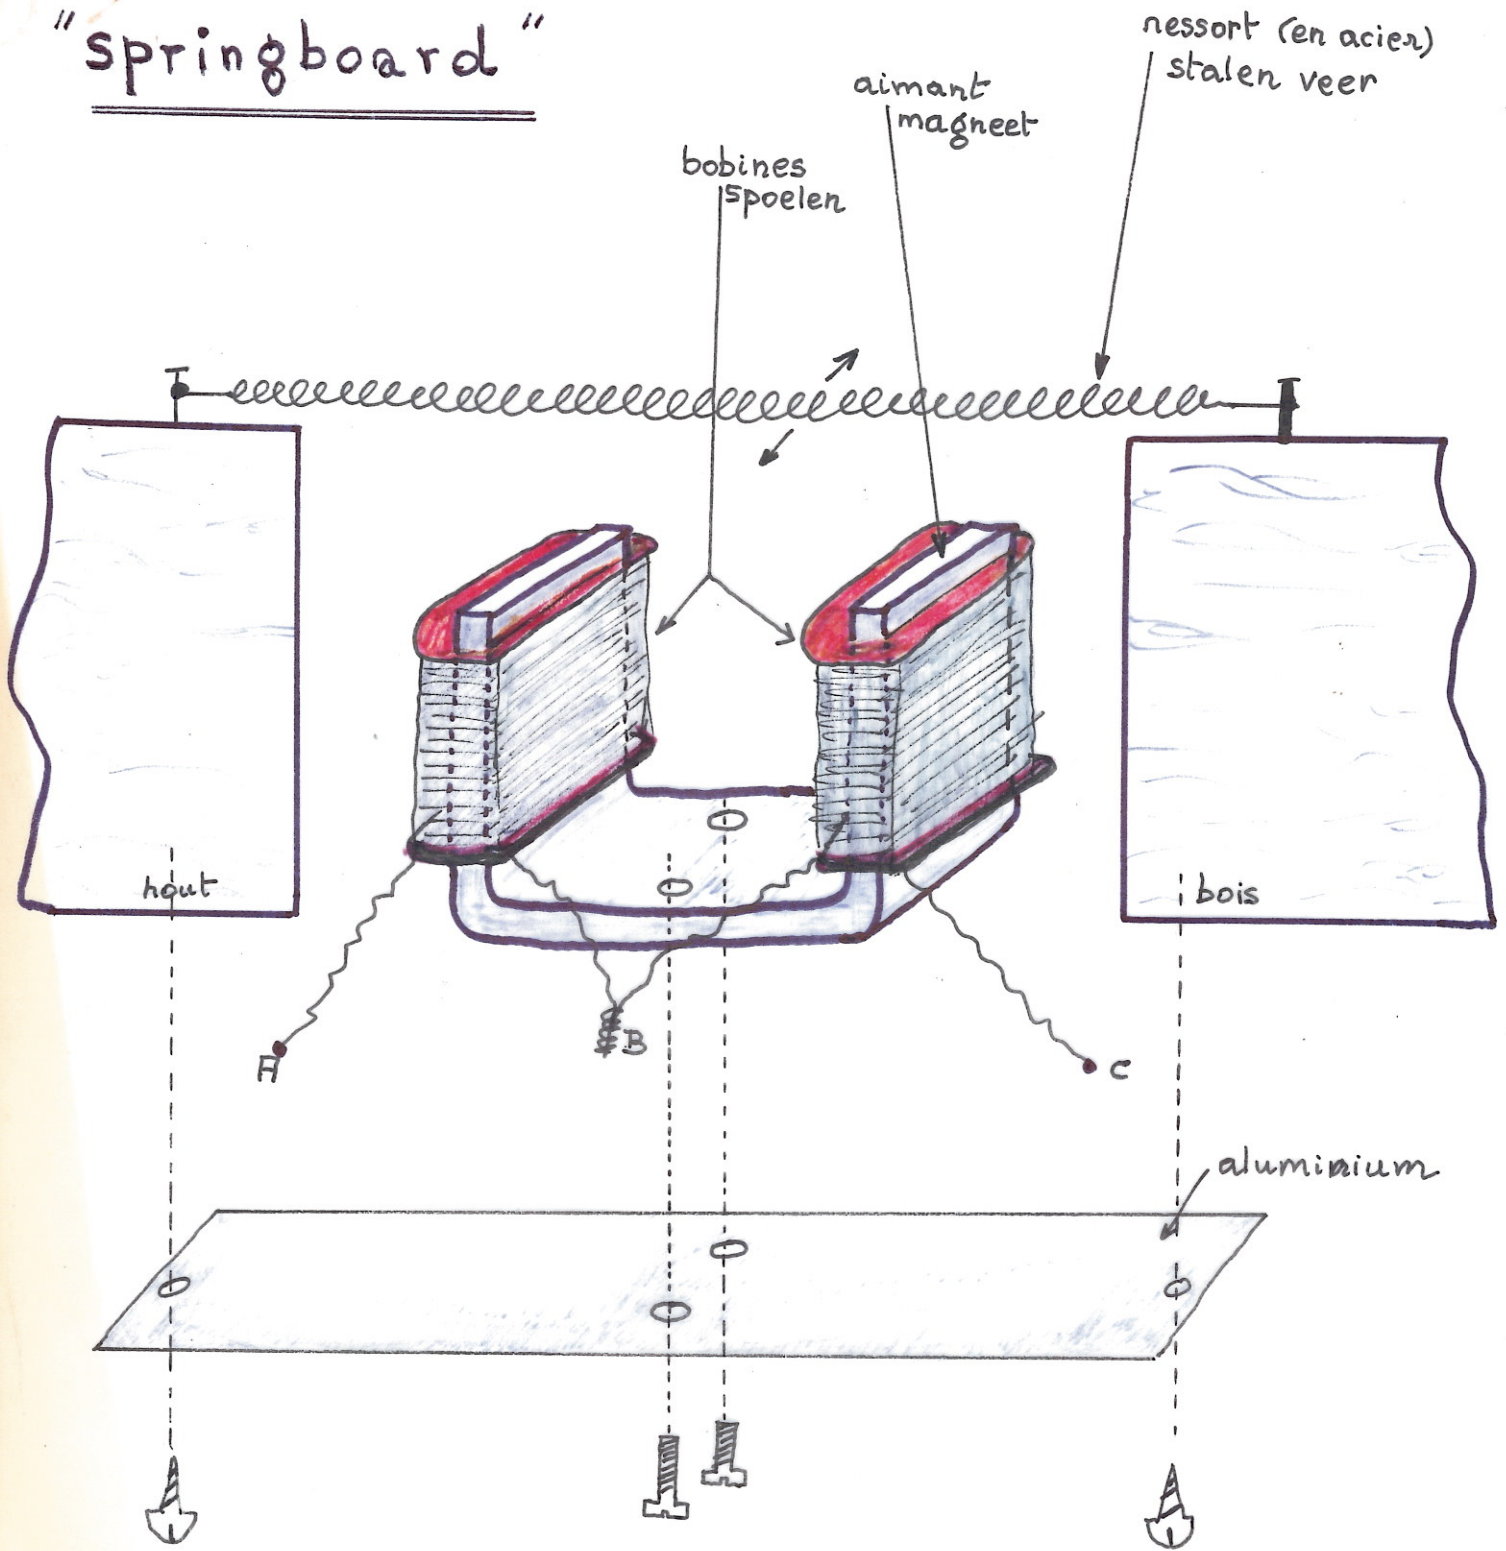 "springboard"
ressort (en acier)
stalen veer
aimant
magneet
bobines
spoelen
hout
bois
A
B
C
aluminium